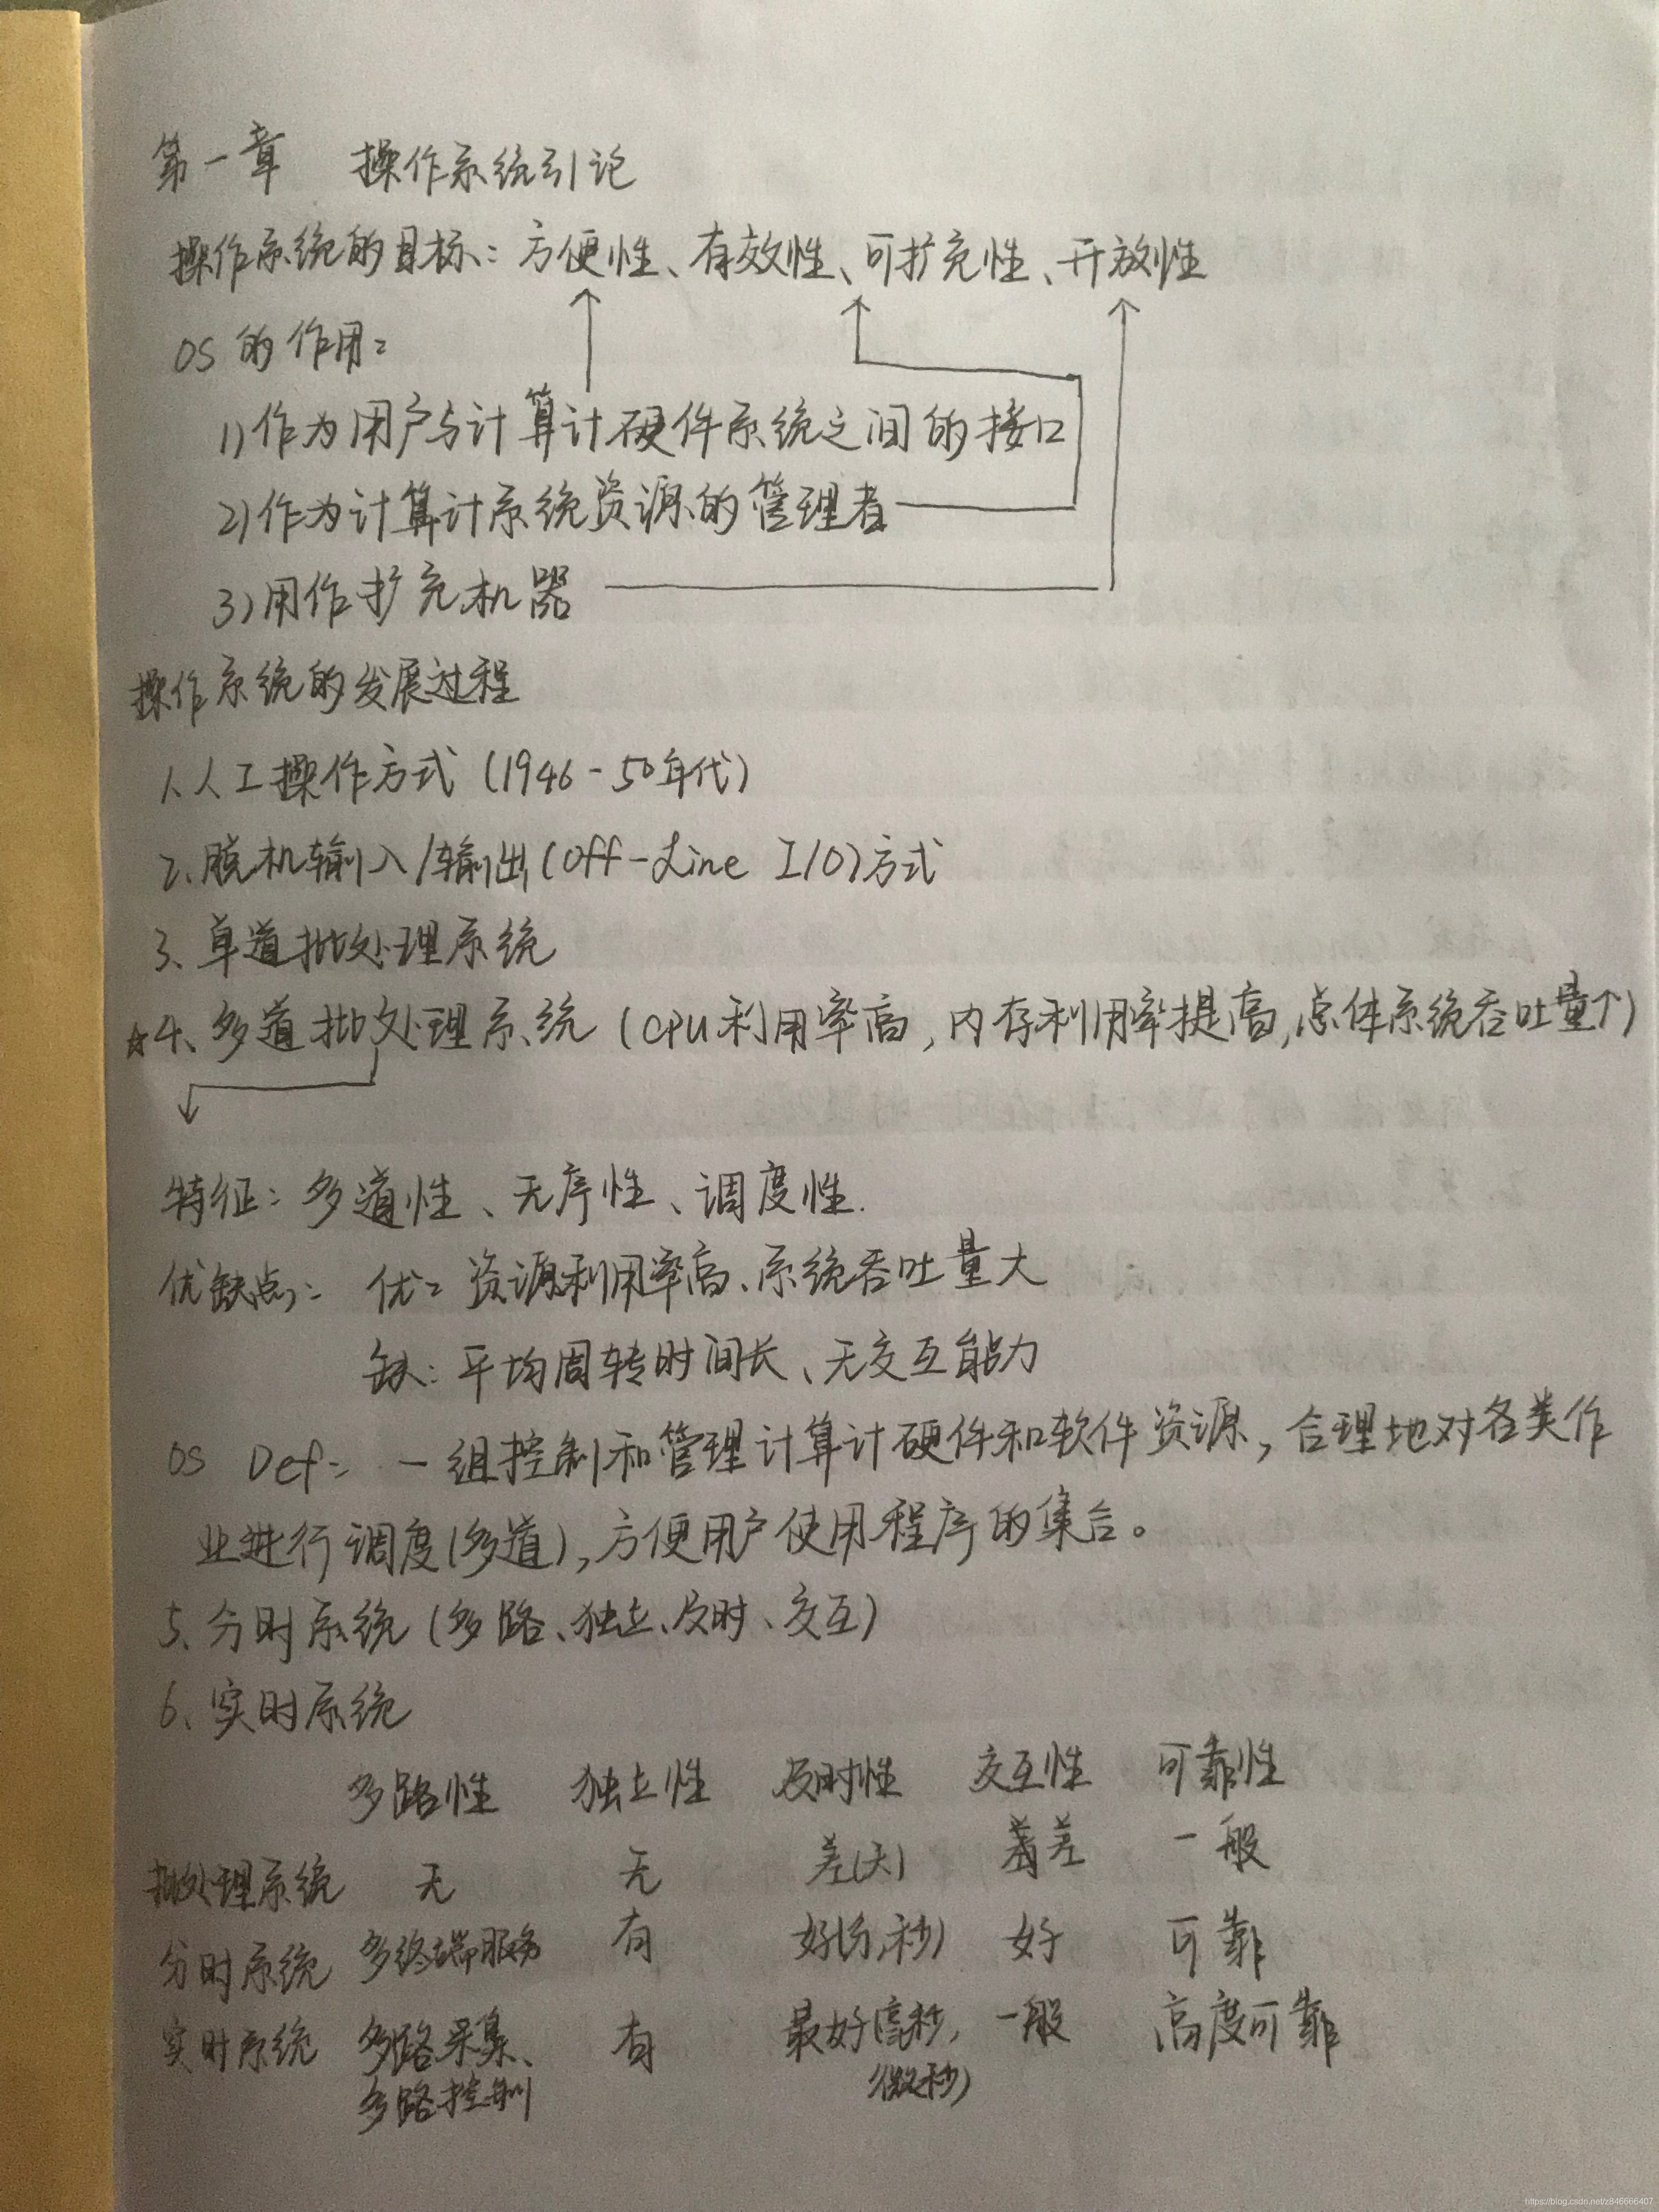 第一章 操作系统引论
操作系统的目标：方便性、有效性、可扩充性、开放性
OS 的作用：
1)作为用户与计算计硬件系统之间的接口
2)作为计算计系统资源的管理者
3)用作扩充机器
操作系统的发展过程
1、人工操作方式 (1946-50年代)
2、脱机输入/输出(Off-Line I/O)方式
3、单道批处理系统
☆4、多道批处理系统 (CPU利用率高,内存利用率提高,总体系统吞吐量↑)
特征：多道性、无序性、调度性.
优缺点： 优：资源利用率高、系统吞吐量大
缺：平均周转时间长、无交互能力
OS Def： 一组控制和管理计算计硬件和软件资源，合理地对各类作
业进行调度(多道),方便用户使用程序的集合。
5、分时系统 (多路、独立、及时、交互)
6、实时系统
多路性 独立性 及时性 交互性 可靠性
批处理系统 无 无 差(天) 差 一般
分时系统 多终端服务 有 好(分,秒) 好 可靠
实时系统 多路采集、 有 最好(毫秒, 一般 高度可靠
多路控制 微秒)
https://blog.csdn.net/z846666407